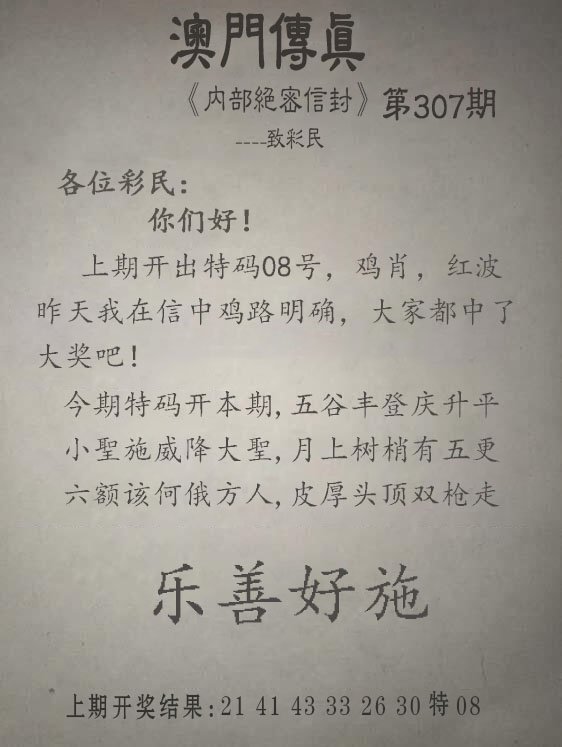 澳門傳眞
《内部絕密信封》第307期
----致彩民
各位彩民:
你们好!
上期开出特码08号，鸡肖，红波
昨天我在信中鸡路明确，大家都中了
大奖吧!
今期特码开本期,五谷丰登庆升平
小聖施威降大聖,月上树梢有五更
六额该何俄方人,皮厚头顶双枪走
乐善好施
上期开奖结果:21 41 43 33 26 30 特 08